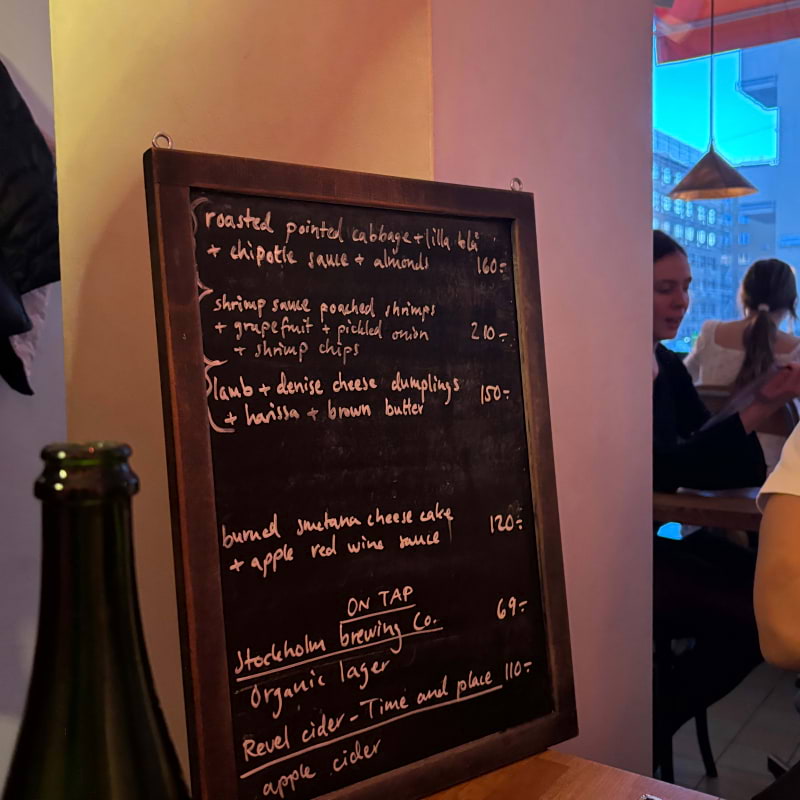 roasted pointed cabbage + lilla blå
+ chipotle sauce + almonds 160:-
shrimp sauce poached shrimps
+ grapefruit + pickled onion 210:-
+ shrimp chips
lamb + denise cheese dumplings 150:-
+ harissa + brown butter
burned smetana cheese cake 120:-
+ apple red wine sauce
ON TAP
Stockholm brewing Co. 69:-
Organic lager
Revel cider - Time and place 110:-
apple cider